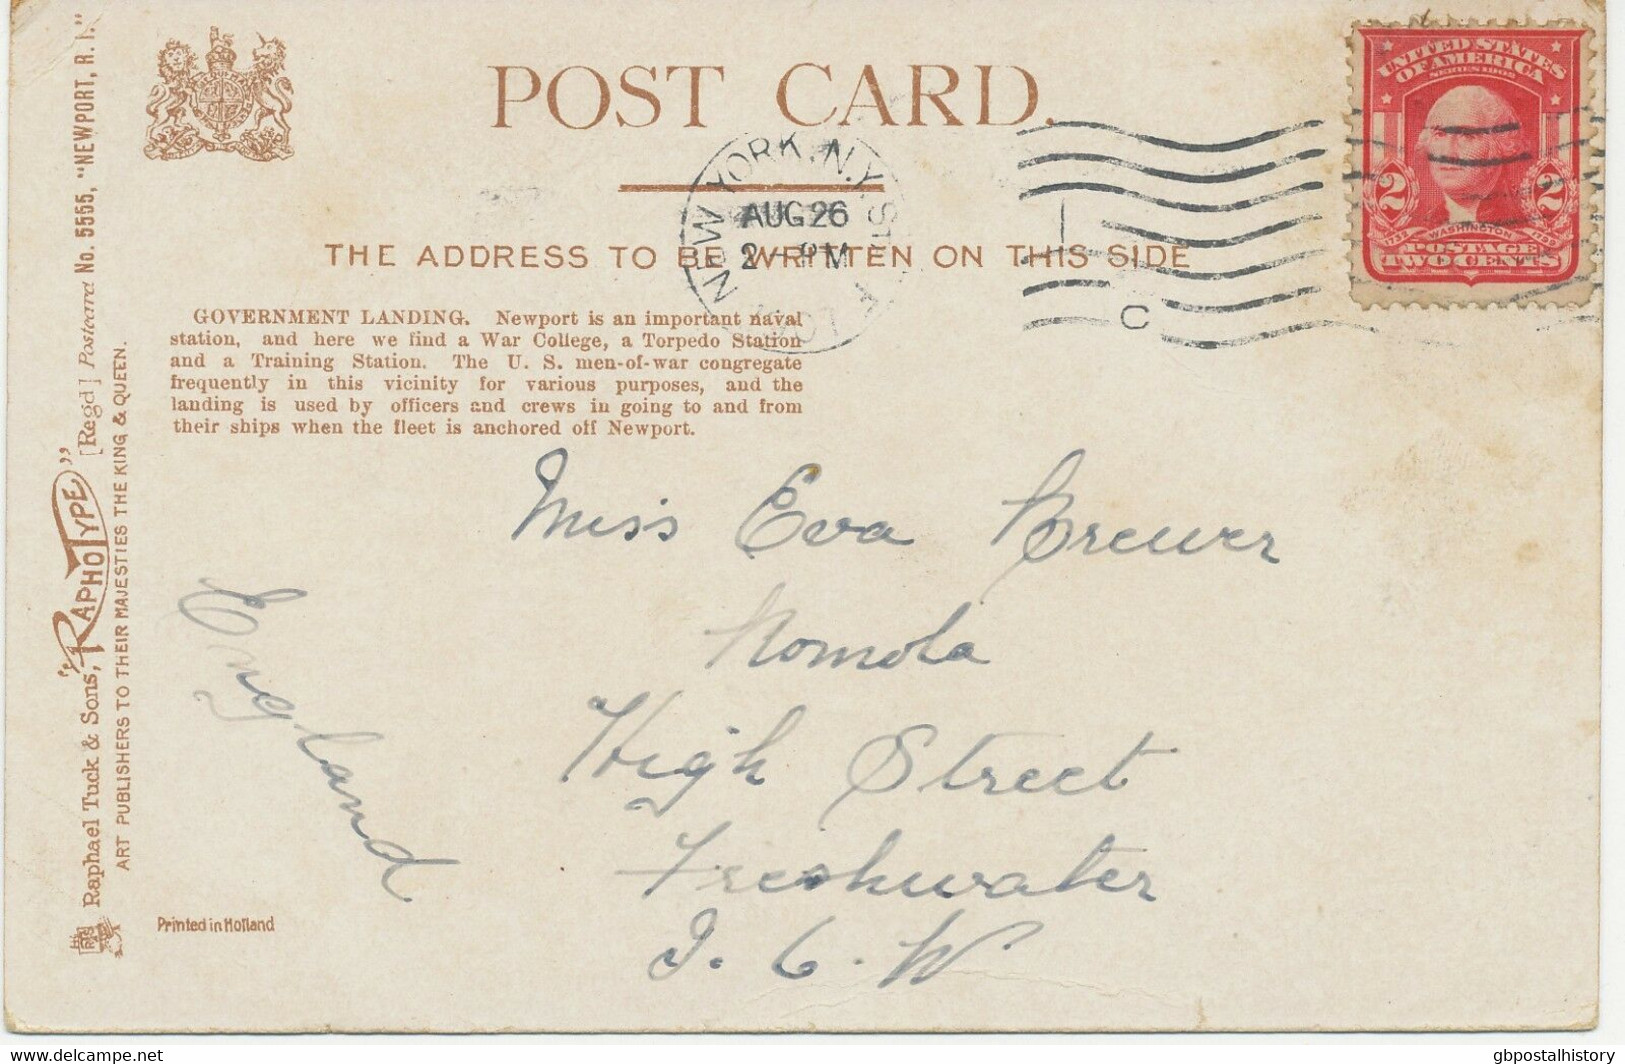 POST CARD.
UNITED STATES
OF AMERICA
SERIES 1902
2 2
1732 WASHINGTON 1799
POSTAGE
TWO CENTS
NEW YORK, N.Y.
AUG 26
2 - PM
C
THE ADDRESS TO BE WRITTEN ON THIS SIDE
GOVERNMENT LANDING. Newport is an important naval
station, and here we find a War College, a Torpedo Station
and a Training Station. The U. S. men-of-war congregate
frequently in this vicinity for various purposes, and the
landing is used by officers and crews in going to and from
their ships when the fleet is anchored off Newport.
Raphael Tuck & Sons, "RAPHOTYPE" [Regd] Postcard No. 5555, "NEWPORT, R. I."
ART PUBLISHERS TO THEIR MAJESTIES THE KING & QUEEN.
Miss Eva Brewer
High Street
Freshwater
England
Printed in Holland
delcampe.net
gbpostalhistory